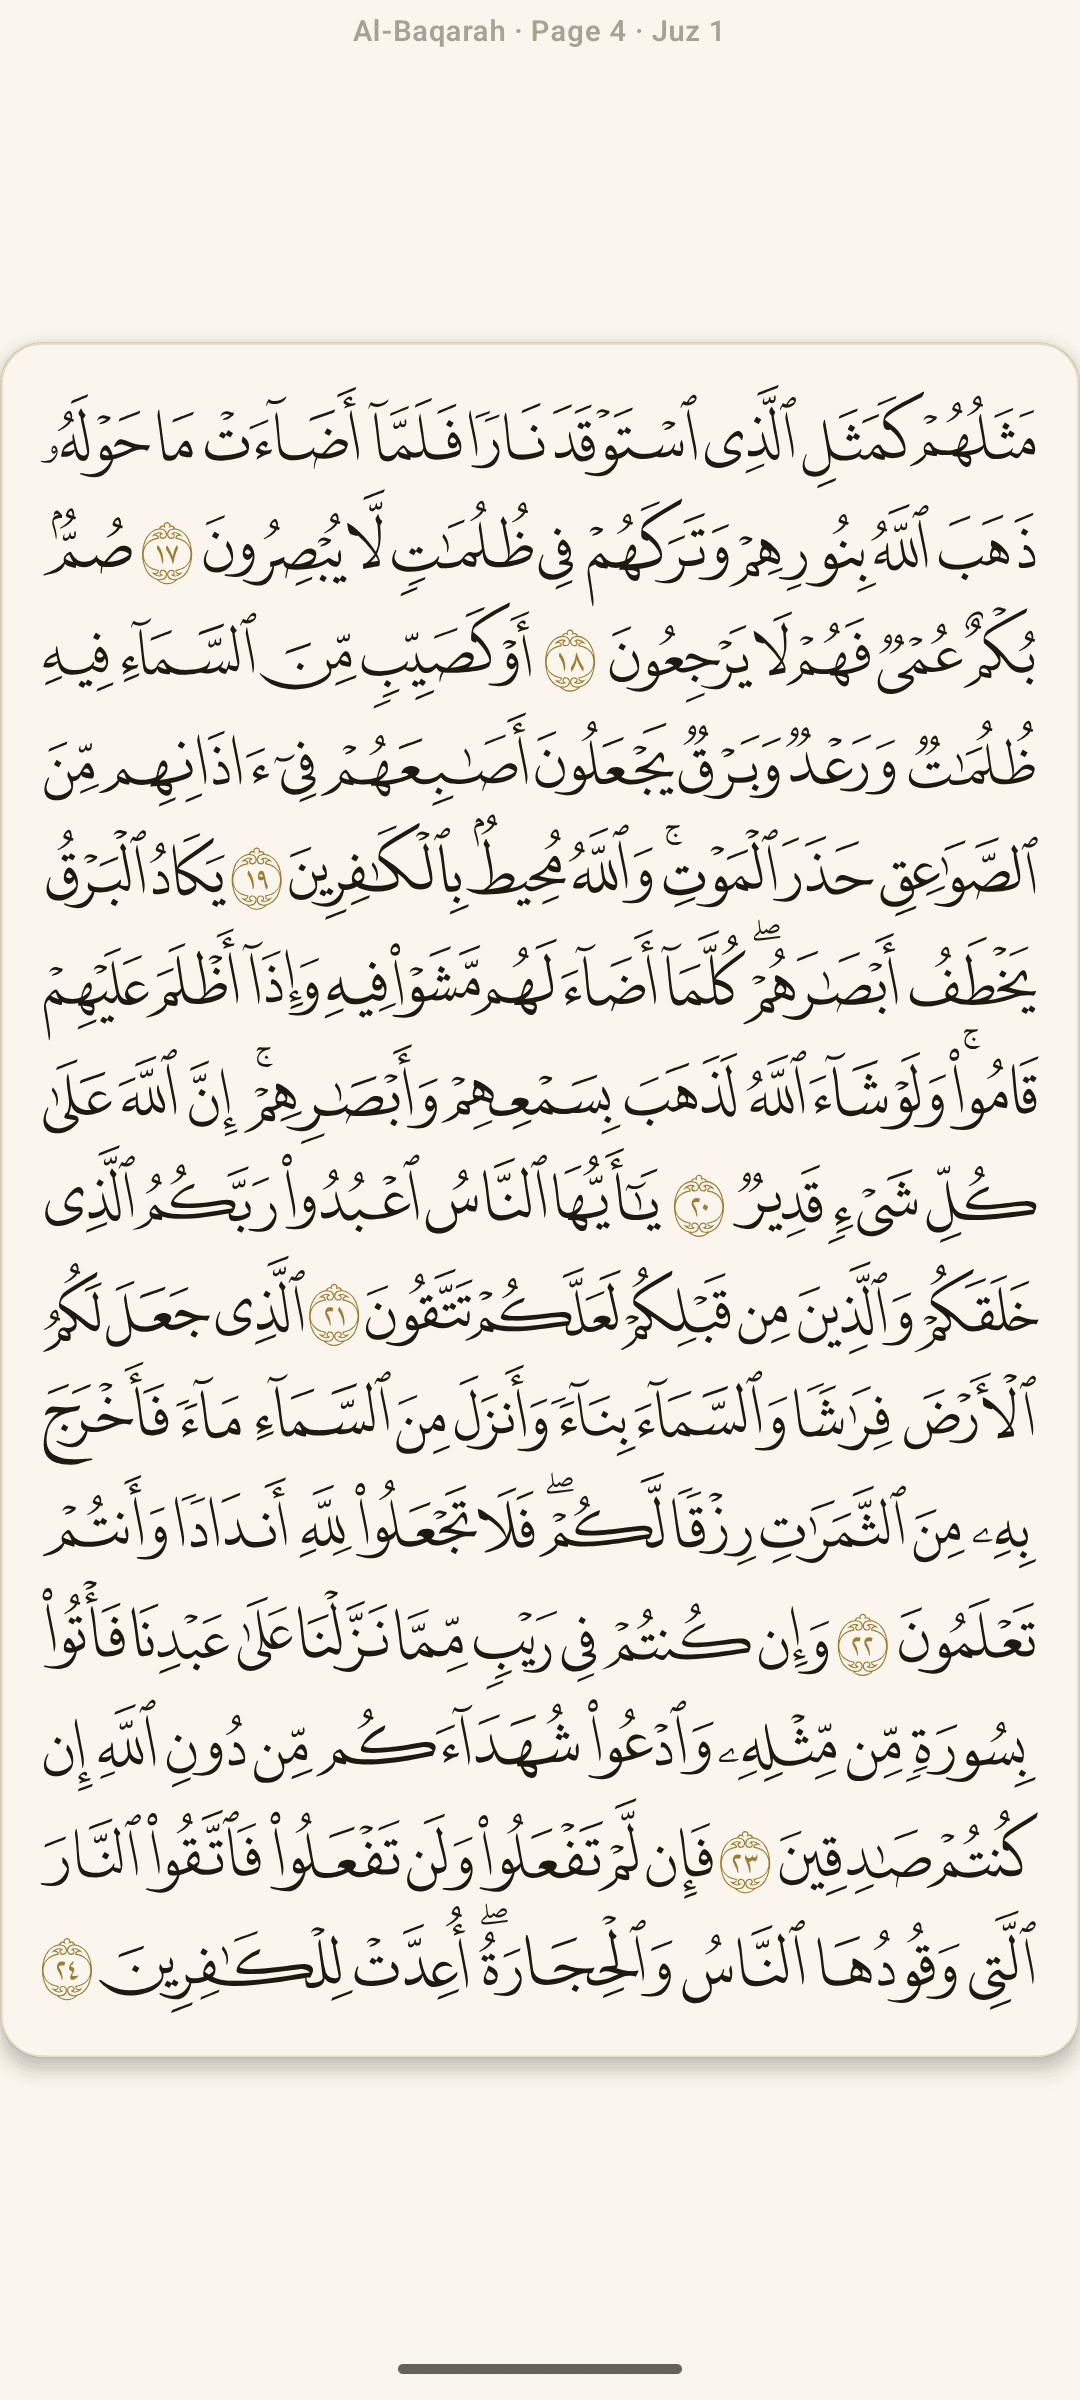 Al-Baqarah · Page 4 · Juz 1
مَثَلُهُمۡ كَمَثَلِ ٱلَّذِى ٱسۡتَوۡقَدَ نَارًا فَلَمَّآ أَضَآءَتۡ مَا حَوۡلَهُۥ
ذَهَبَ ٱللَّهُ بِنُورِهِمۡ وَتَرَكَهُمۡ فِى ظُلُمَٰتٍ لَّا يُبۡصِرُونَ ١٧ صُمُّۢ
بُكۡمٌ عُمۡىٌ فَهُمۡ لَا يَرۡجِعُونَ ١٨ أَوۡ كَصَيِّبٍ مِّنَ ٱلسَّمَآءِ فِيهِ
ظُلُمَٰتٌ وَرَعۡدٌ وَبَرۡقٌ يَجۡعَلُونَ أَصَٰبِعَهُمۡ فِىٓ ءَاذَانِهِم مِّنَ
ٱلصَّوَٰعِقِ حَذَرَ ٱلۡمَوۡتِۚ وَٱللَّهُ مُحِيطُۢ بِٱلۡكَٰفِرِينَ ١٩ يَكَادُ ٱلۡبَرۡقُ
يَخۡطَفُ أَبۡصَٰرَهُمۡۖ كُلَّمَآ أَضَآءَ لَهُم مَّشَوۡاْ فِيهِ وَإِذَآ أَظۡلَمَ عَلَيۡهِمۡ
قَامُواْۚ وَلَوۡ شَآءَ ٱللَّهُ لَذَهَبَ بِسَمۡعِهِمۡ وَأَبۡصَٰرِهِمۡۚ إِنَّ ٱللَّهَ عَلَىٰ
كُلِّ شَىۡءٍ قَدِيرٌ ٢٠ يَٰٓأَيُّهَا ٱلنَّاسُ ٱعۡبُدُواْ رَبَّكُمُ ٱلَّذِى
خَلَقَكُمۡ وَٱلَّذِينَ مِن قَبۡلِكُمۡ لَعَلَّكُمۡ تَتَّقُونَ ٢١ ٱلَّذِى جَعَلَ لَكُمُ
ٱلۡأَرۡضَ فِرَٰشًا وَٱلسَّمَآءَ بِنَآءً وَأَنزَلَ مِنَ ٱلسَّمَآءِ مَآءً فَأَخۡرَجَ
بِهِۦ مِنَ ٱلثَّمَرَٰتِ رِزۡقًا لَّكُمۡۖ فَلَا تَجۡعَلُواْ لِلَّهِ أَندَادًا وَأَنتُمۡ
تَعۡلَمُونَ ٢٢ وَإِن كُنتُمۡ فِى رَيۡبٍ مِّمَّا نَزَّلۡنَا عَلَىٰ عَبۡدِنَا فَأۡتُواْ
بِسُورَةٍ مِّن مِّثۡلِهِۦ وَٱدۡعُواْ شُهَدَآءَكُم مِّن دُونِ ٱللَّهِ إِن
كُنتُمۡ صَٰدِقِينَ ٢٣ فَإِن لَّمۡ تَفۡعَلُواْ وَلَن تَفۡعَلُواْ فَٱتَّقُواْ ٱلنَّارَ
ٱلَّتِى وَقُودُهَا ٱلنَّاسُ وَٱلۡحِجَارَةُۖ أُعِدَّتۡ لِلۡكَٰفِرِينَ ٢٤